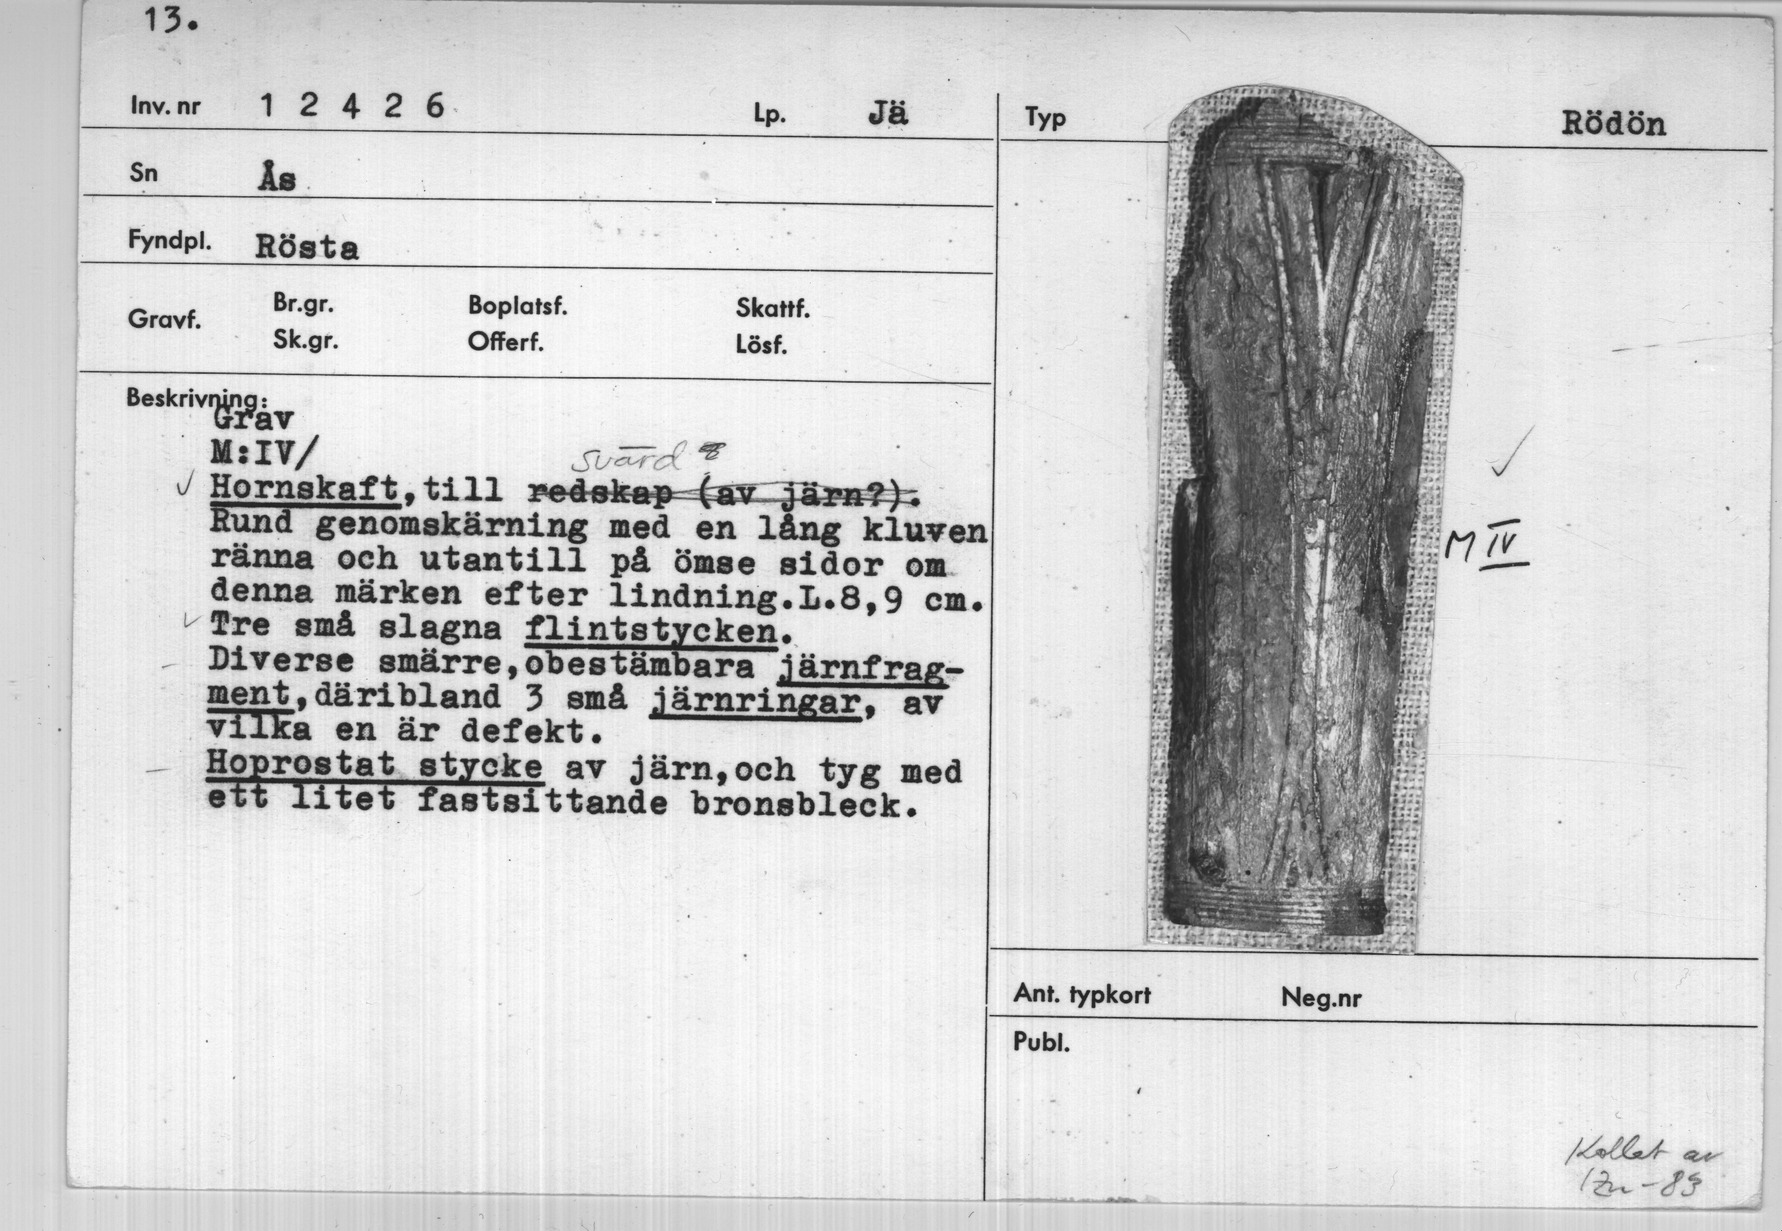 13.
Inv. nr 1 2 4 2 6 Lp. Jä
Sn Ås
Fyndpl. Rösta
Gravf. Br.gr. Boplatsf. Skattf.
Sk.gr. Offerf. Lösf.
Beskrivning:
Grav
M:IV/
svärd
Hornskaft, till redskap (av järn?).
Rund genomskärning med en lång kluven
ränna och utantill på ömse sidor om
denna märken efter lindning.L.8,9 cm.
Tre små slagna flintstycken.
Diverse smärre,obestämbara järnfrag-
ment,däribland 3 små järnringar, av
vilka en är defekt.
Hoprostat stycke av järn,och tyg med
ett litet fastsittande bronsbleck.
Typ Rödön
M IV
Ant. typkort Neg.nr
Publ.
Kollat av
-83